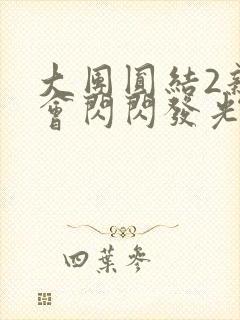 大團圓結2新
會閃閃發光
四葉參